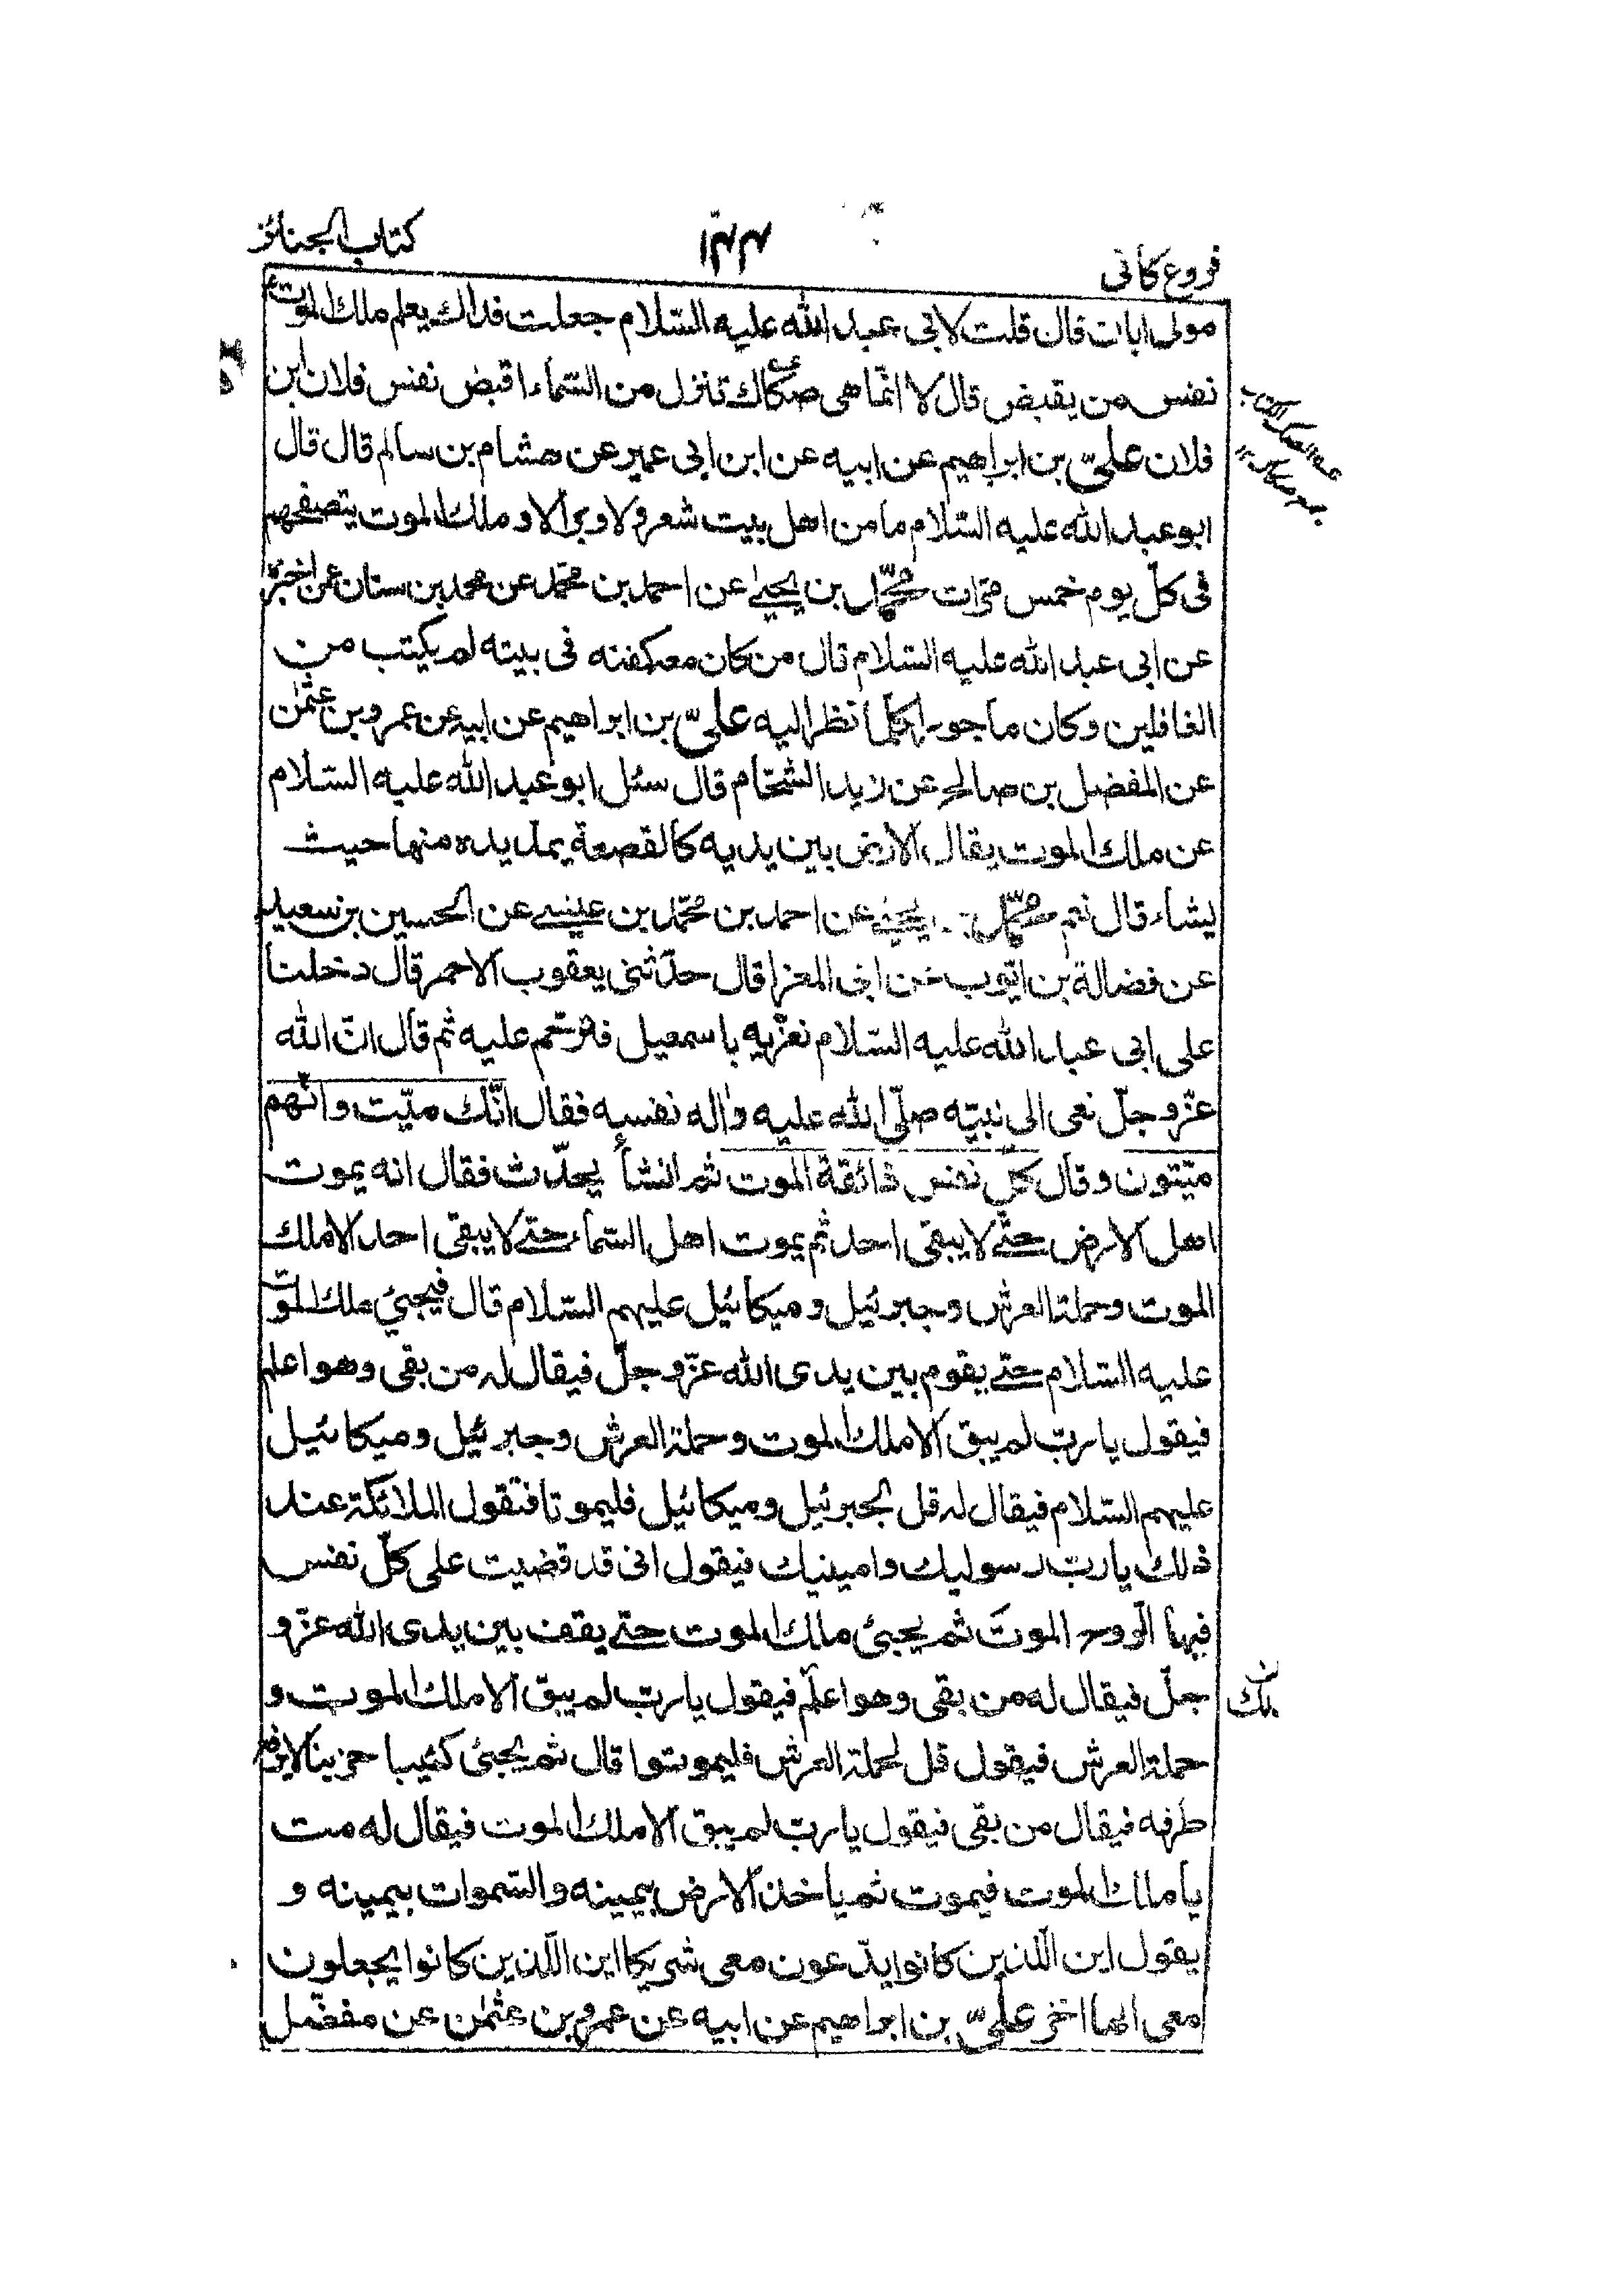 فروع كافى
١٣٣
كتاب الجنائز
مولى ابان قال قلت لابى عبد الله عليه السّلام جعلت فداك يعلم ملك الموت
نفس من يقبض قال لا انّما هى صكاك تنزل من السّماء اقبض نفس فلان ابن
فلان علىّ بن ابراهيم عن ابيه عن ابن ابى عمير عن هشام بن سالم قال قال
ابو عبد الله عليه السّلام ما من اهل بيت شعر و لا وبر الا و ملك الموت يتصفحهم
فى كلّ يوم خمس مرّات محمّد بن يحيى عن احمد بن محمّد عن محمد بن سنان عمن اخبره
عن ابى عبد الله عليه السّلام قال من كان معه كفنه فى بيته لم يكتب من
الغافلين و كان ماجورا كلّما نظر اليه علىّ بن ابراهيم عن ابيه عن عمرو بن عثمٰن
عن المفضل بن صالح عن زيد الشّحّام قال سئل ابو عبد الله عليه السّلام
عن ملك الموت يقال الارض بين يديه كالقصعة يمدّ يده منها حيث
يشاء قال نعم محمّد بن يحيى عن احمد بن محمّد بن عيسى عن الحسين بن سعيد
عن فضالة بن ايّوب عن ابى المعزا قال حدّثنى يعقوب الاحمر قال دخلنا
على ابى عبد الله عليه السّلام نعزّيه باسمعيل فترحّم عليه ثم قال انّ الله
عزّ و جلّ نعى الى نبيّه صلّى الله عليه واٰله نفسه فقال انّك ميّت و انّهم
ميّتون و قال كلّ نفس ذائقة الموت ثم انشأ يحدّث فقال انه يموت
اهل الارض حتّى لا يبقى احد ثم يموت اهل السّماء حتّى لا يبقى احد الا ملك
الموت و حملة العرش و جبرئيل و ميكائيل عليهم السّلام قال فيجيئ ملك الموت
عليه السّلام حتّى يقوم بين يدى الله عزّ و جلّ فيقال له من بقى و هو اعلم
فيقول يا ربّ لم يبق الا ملك الموت و حملة العرش و جبرئيل و ميكائيل
عليهم السّلام فيقال له قل لجبرئيل و ميكائيل فليموتا فتقول الملائكة عند
ذلك يا ربّ رسوليك و امينيك فيقول انى قد قضيت على كلّ نفس
فيها الرّوح الموت ثم يجيئ ملك الموت حتّى يقف بين يدى الله عزّ و
جلّ فيقال له من بقى و هو اعلم فيقول يا ربّ لم يبق الا ملك الموت و
حملة العرش فيقول قل لحملة العرش فليموتوا قال ثم يجيئ كئيبا حزينا لا يرفع
طرفه فيقال من بقى فيقول يا ربّ لم يبق الا ملك الموت فيقال له مت
يا ملك الموت فيموت ثم ياخذ الارض بيمينه و السّموات بيمينه و
يقول اين الّذين كانوا يدّعون معى شريكا اين الّذين كانوا يجعلون
معى الها اخر علىّ بن ابراهيم عن ابيه عن عمرو بن عثمٰن عن مفضّل